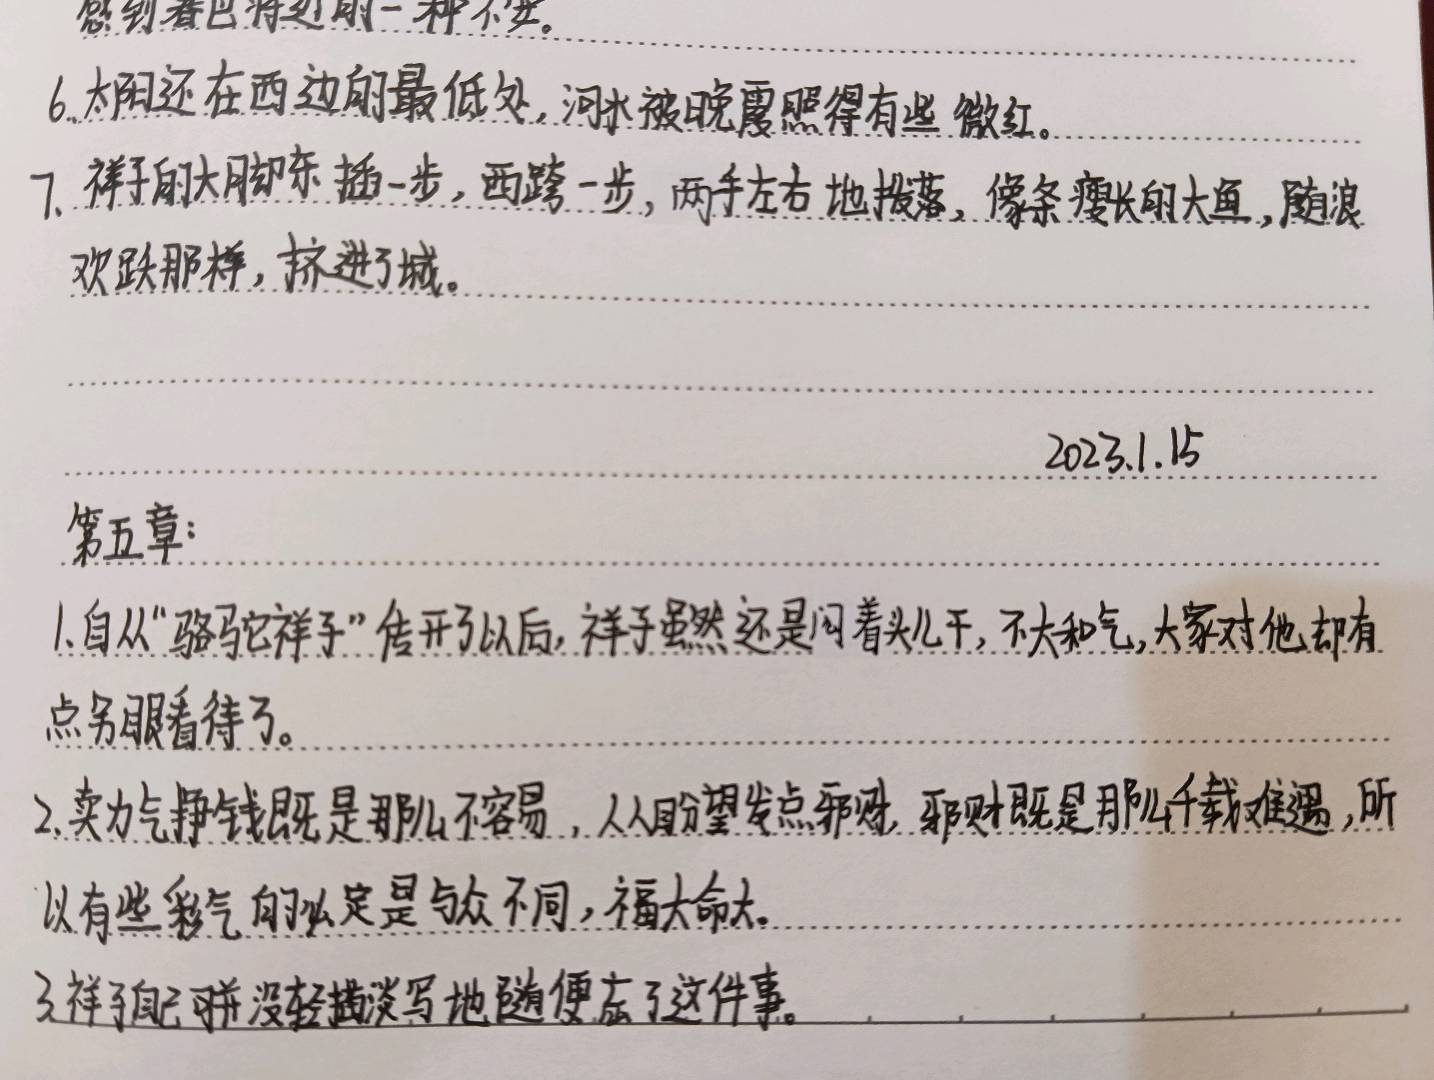 感到春已将近的一种不安。
6. 太阳还在西边的最低处，河水被晚霞照得有些微红。
7. 祥子的大脚东插一步，西跨一步，两手左右地拨落，像条瘦长的大鱼，随浪
欢跃那样，挤进了城。
2023.1.15
第五章：
1. 自从“骆驼祥子”传开了以后，祥子虽然还是闷着头儿干，不大和气，大家对他却有
点另眼看待了。
2. 卖力气挣钱既是那么不容易，人人盼望发点邪财，邪财既是那么千载难遇，所
以有些彩气的必定是与众不同，福大命大。
3. 祥子自己可并没轻描淡写地随便忘了这件事。